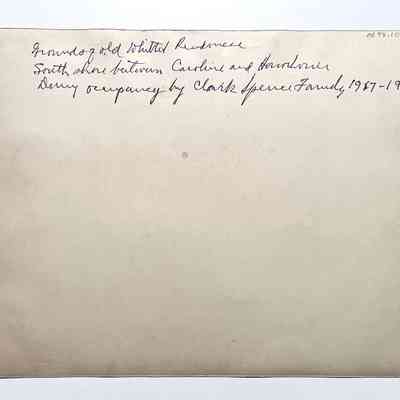 Grounds of old Whitted Residence
South shore between Caroline and
During occupancy by Clark Spence Family 19